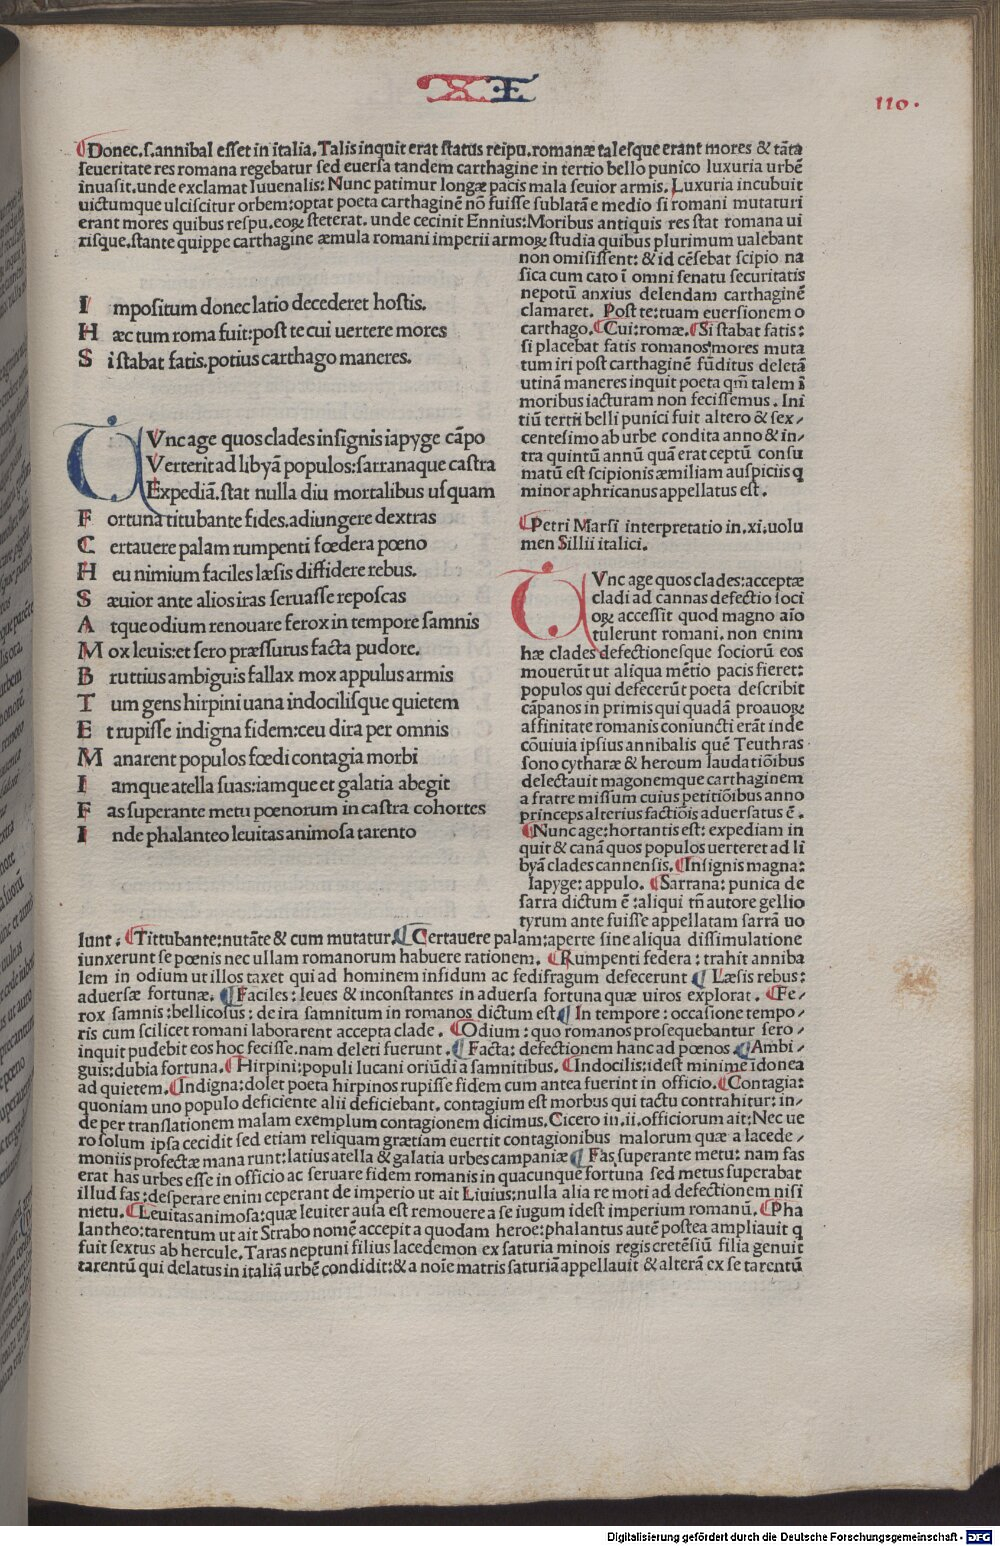 XI
110.
Donec.s.annibal esset in italia.Talis inquit erat status reipu.romanæ talesque erant mores & tãta
seueritate res romana regebatur sed euersa tandem carthagine in tertio bello punico luxuria urbẽ
inuasit.unde exclamat Iuuenalis: Nunc patimur longæ pacis mala seuior armis. Luxuria incubuit
uictumque ulciscitur orbem:optat poeta carthaginẽ nõ fuisse sublatã e medio si romani mutaturi
erant mores quibus respu.eoꝝ steterat. unde cecinit Ennius:Moribus antiquis res stat romana ui
risque.stante quippe carthagine æmula romani imperii armoꝝ studia quibus plurimum ualebant
non omisissent: & id cẽsebat scipio na
sica cum cato ĩ omni senatu securitatis
nepotũ anxius delendam carthaginẽ
clamaret. Post te:tuam euersionem o
carthago. Cui:romæ. Si stabat fatis:
si placebat fatis romanos mores muta
tum iri post carthaginẽ fũditus deletã
utinã maneres inquit poeta qm̃ talem ĩ
moribus iacturam non fecissemus. Ini
tiũ tertii belli punici fuit altero & sex-
centesimo ab urbe condita anno & in-
tra quintũ annũ quã erat ceptũ consu
matũ est scipionis æmiliam auspiciis q
minor aphricanus appellatus est.
I mpositum donec latio decederet hostis.
H æc tum roma fuit:post te cui uertere mores
S i stabat fatis.potius carthago maneres.
Vnc age quos clades insignis iapyge cãpo
Verterit ad libyã populos:sarranaque castra
Expediã.stat nulla diu mortalibus usquam
F ortuna titubante fides.adiungere dextras
C ertauere palam rumpenti fœdera pœno
H eu nimium faciles læsis diffidere rebus.
S æuior ante alios iras seruasse reposcas
A tque odium renouare ferox in tempore samnis
M ox leuis:et sero præssutus facta pudore.
B ruttius ambiguis fallax mox appulus armis
T um gens hirpini uana indocilisque quietem
E t rupisse indigna fidem:ceu dira per omnis
M anarent populos fœdi contagia morbi
I amque atella suas:iamque et galatia abegit
F as superante metu pœnorum in castra cohortes
I nde phalanteo leuitas animosa tarento
Petri Marsi interpretatio in.xi.uolu
men Sillii italici.
Vnc age quos clades:acceptæ
cladi ad cannas defectio soci
oꝝ accessit quod magno aĩo
tulerunt romani. non enim
hæ clades defectionesque sociorũ eos
mouerũt ut aliqua mẽtio pacis fieret:
populos qui defecerũt poeta describit
cãpanos in primis qui quadã proauoꝝ
affinitate romanis coniuncti erãt inde
cõuiuia ipsius annibalis quẽ Teuthras
sono cytharæ & heroum laudatiõibus
delectauit magonemque carthaginem
a fratre missum cuius petitiõibus anno
princeps alterius factiõis aduersatus ẽ.
Nunc age:hortantis est: expediam in
quit & canã quos populos uerteret ad li
byã clades cannensis. Insignis magna:
Iapyge: appulo. Sarrana: punica de
sarra dictum ẽ :aliqui tñ autore gellio
tyrum ante fuisse appellatam sarrã uo
lunt: Tittubante:nutãte & cum mutatur. Certauere palam:aperte sine aliqua dissimulatione
iunxerunt se pœnis nec ullam romanorum habuere rationem. Rumpenti federa: trahit anniba
lem in odium ut illos taxet qui ad hominem infidum ac fedifragum defecerunt Læsis rebus:
aduersæ fortunæ. Faciles: leues & inconstantes in aduersa fortuna quæ uiros explorat. Fe-
rox samnis:bellicosus: de ira samnitum in romanos dictum est. In tempore: occasione tempo-
ris cum scilicet romani laborarent accepta clade. Odium: quo romanos prosequebantur sero-
inquit pudebit eos hoc fecisse.nam deleti fuerunt. Facta: defectionem hanc ad pœnos Ambi-
guis:dubia fortuna. Hirpini:populi lucani oriũdi a samnitibus. Indocilis:idest minime idonea
ad quietem. Indigna:dolet poeta hirpinos rupisse fidem cum antea fuerint in officio. Contagia:
quoniam uno populo deficiente alii deficiebant. contagium est morbus qui tactu contrahitur: in-
de per translationem malam exemplum contagionem dicimus. Cicero in.ii.officiorum ait:Nec ue
ro solum ipsa cecidit sed etiam reliquam grætiam euertit contagionibus malorum quæ a lacede-
moniis profectæ mana runt:latius atella & galatia urbes campaniæ Fas superante metu: nam fas
erat has urbes esse in officio ac seruare fidem romanis in quacunque fortuna sed metus superabat
illud fas:desperare enim ceperant de imperio ut ait Liuius:nulla alia re moti ad defectionem nisi
metu. Leuitas animosa:quæ leuiter ausa est remouere a se iugum idest imperium romanũ. Pha
lantheo:tarentum ut ait Strabo nomẽ accepit a quodam heroe:phalantus autẽ postea ampliauit q
fuit sextus ab hercule. Taras neptuni filius lacedemon ex saturia minois regis cretẽsiũ filia genuit
tarentũ qui delatus in italiã urbẽ condidit:& a noĩe matris saturiã appellauit & alterã ex se tarentũ
Digitalisierung gefördert durch die Deutsche Forschungsgemeinschaft - DFG